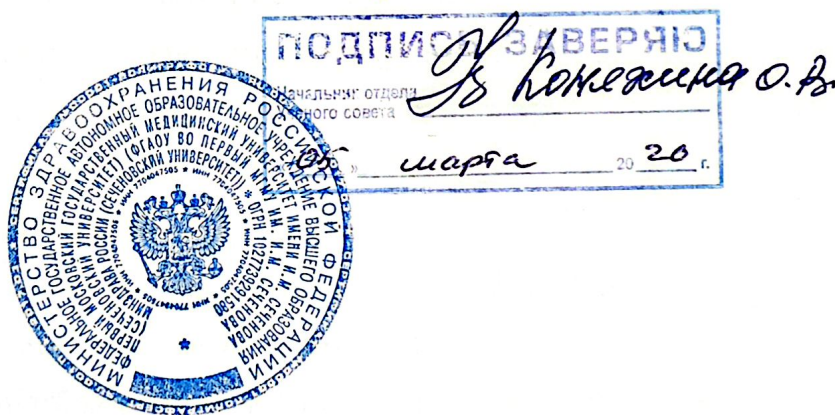 ПОДПИСЬ ЗАВЕРЯЮ
Начальник отдела
ного совета
Кожехина О.В.
05 » марта 20 20 г.
МИНИСТЕРСТВО ЗДРАВООХРАНЕНИЯ РОССИЙСКОЙ ФЕДЕРАЦИИ
ФЕДЕРАЛЬНОЕ ГОСУДАРСТВЕННОЕ АВТОНОМНОЕ ОБРАЗОВАТЕЛЬНОЕ УЧРЕЖДЕНИЕ ВЫСШЕГО ОБРАЗОВАНИЯ
ПЕРВЫЙ МОСКОВСКИЙ ГОСУДАРСТВЕННЫЙ МЕДИЦИНСКИЙ УНИВЕРСИТЕТ ИМЕНИ И.М. СЕЧЕНОВА
(СЕЧЕНОВСКИЙ УНИВЕРСИТЕТ) (ФГАОУ ВО ПЕРВЫЙ МГМУ ИМ. И.М. СЕЧЕНОВА
МИНЗДРАВА РОССИИ (СЕЧЕНОВСКИЙ УНИВЕРСИТЕТ)) * ОГРН 1027739291580
* ИНН 7704047505 * ИНН 7704047505 * ИНН 7704047505